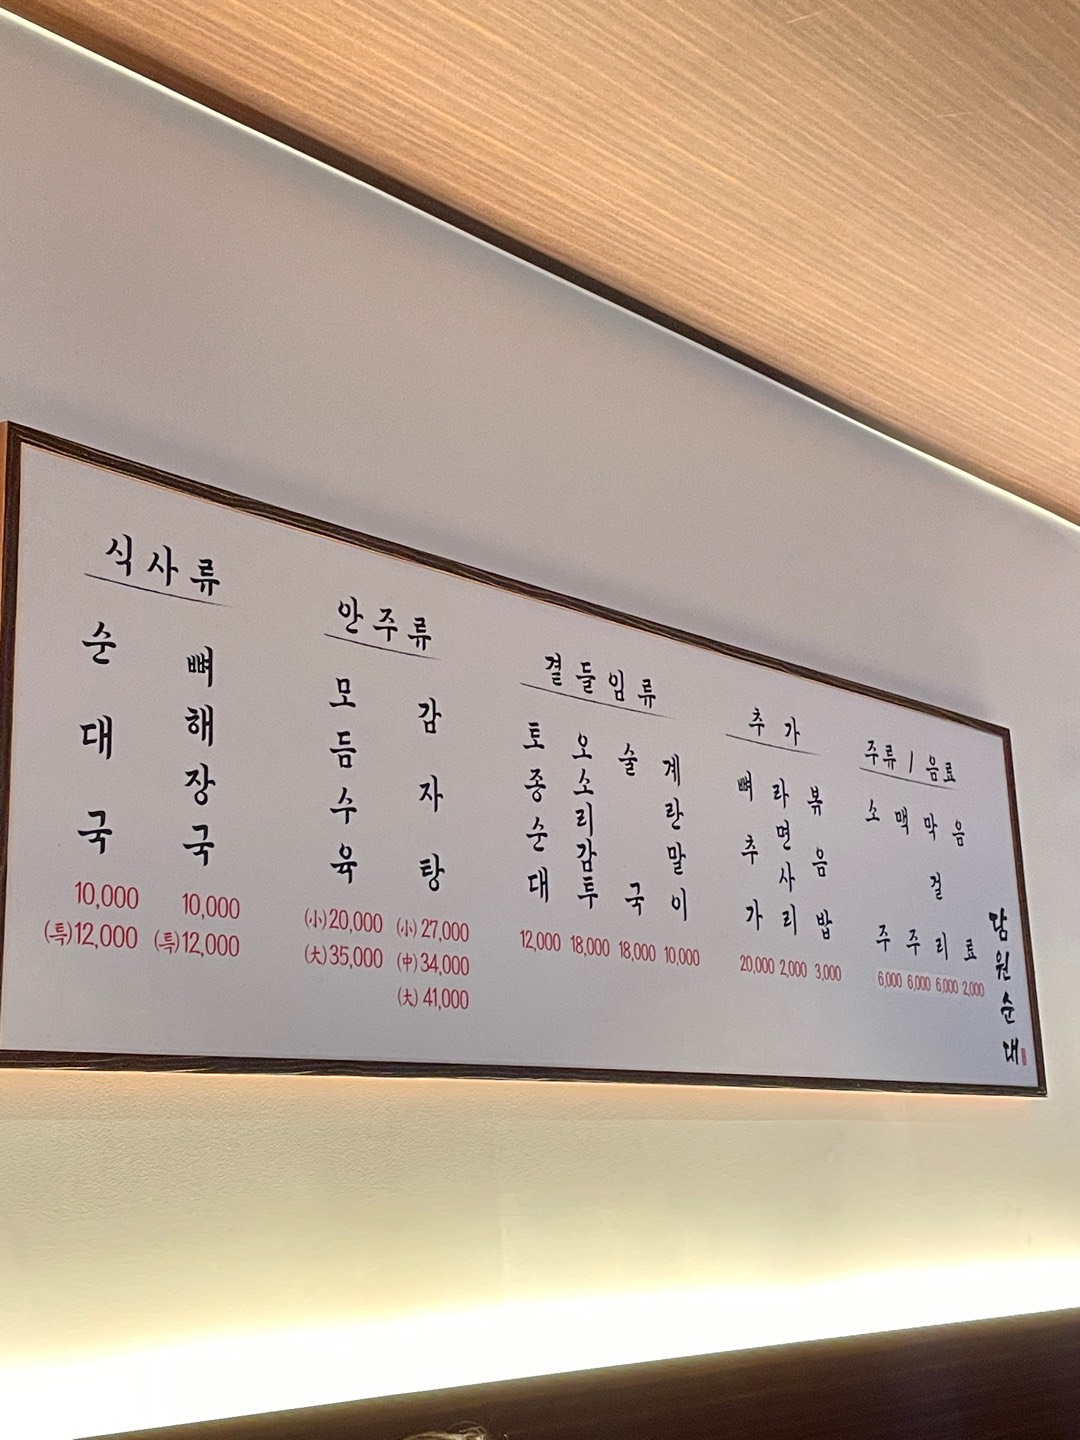 식사류
순대국
10,000
(특)12,000
뼈해장국
10,000
(특)12,000
안주류
모듬수육
(小)20,000
(大)35,000
감자탕
(小)27,000
(中)34,000
(大)41,000
곁들임류
토종순대
12,000
오소리감투
18,000
술국
18,000
계란말이
10,000
추가
뼈추가
20,000
라면사리
2,000
볶음밥
3,000
주류 / 음료
소주
6,000
맥주
6,000
막걸리
6,000
음료
2,000
담원순대